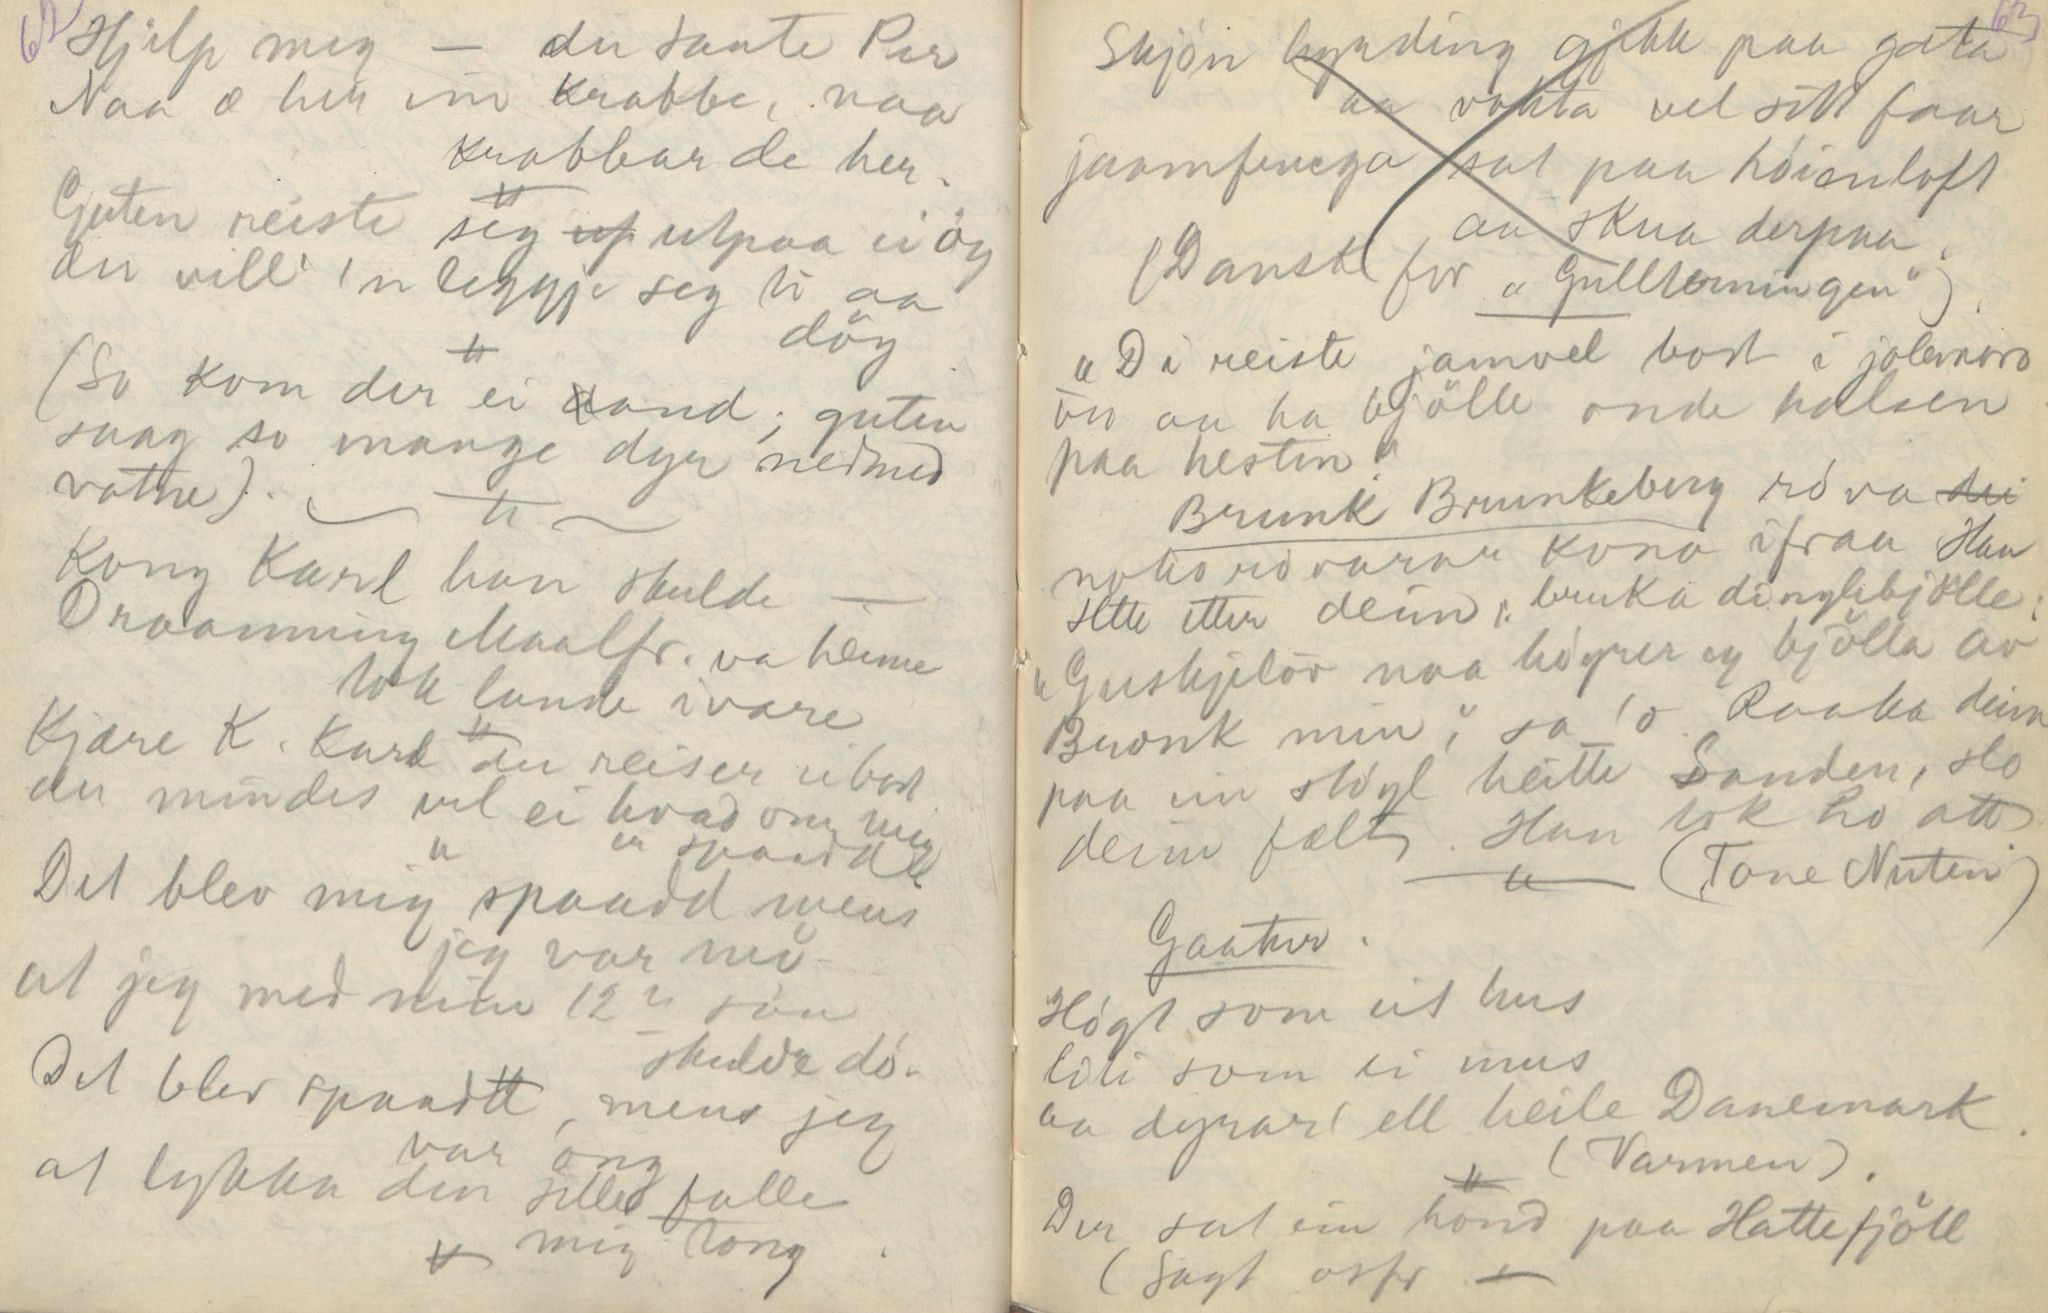 62
Hjelp meg — du sante Per
Naa æ her ein Krabbe, naa
krabbar de her.
"
Guten reiste seg utpaa ei öy
du vill 'n leggje seg ti aa
döy
"
(So kom der ei and; guten
saag so mange dyr nedmed
vatne).
"
Kong Karl han skulde —
Draanning Maalfr. va heime
tok lunde ivare
"
Kjære K. Karl du reiser ibort
du mindes vel ei hvad om mig
er spaadd
"
Det blev mig spaadd mens
jeg var mö
at jeg med min 12te sön
skulde dö.
Det blev spaadtt, mens jeg
var ong
at lykka den selle falle
mig tong.
"
63
Skjön kynding gjekk paa gata
aa vakta vel sitt faar
jaamfruega sat paa höienloft
aa skua derpaa.
(Dansk for "Gullterningen").
"Di reiste jamvel bort i jolemoro
en aa ha bjölle onde halsen
paa hesten."
Brunk Brunkeberg röva
noko rövarar kona ifraa Han
sette etter deim, bruka dinglebjölle:
"Guskjelöv naa höyrer eg bjölla av
Bronk min", sa 'o. Raaka deim
paa ein stögl heitte Sanden, slo
deim fælt. Han tok ho att.
(Tone Nuten)
"
Gaatur.
Högt som eit hus
liti som ei mus
aa dyrar' ell heile Danemark.
(Varmen).
"
Der sat ein hönd paa Hattefjöll
(Sagt osfr. —